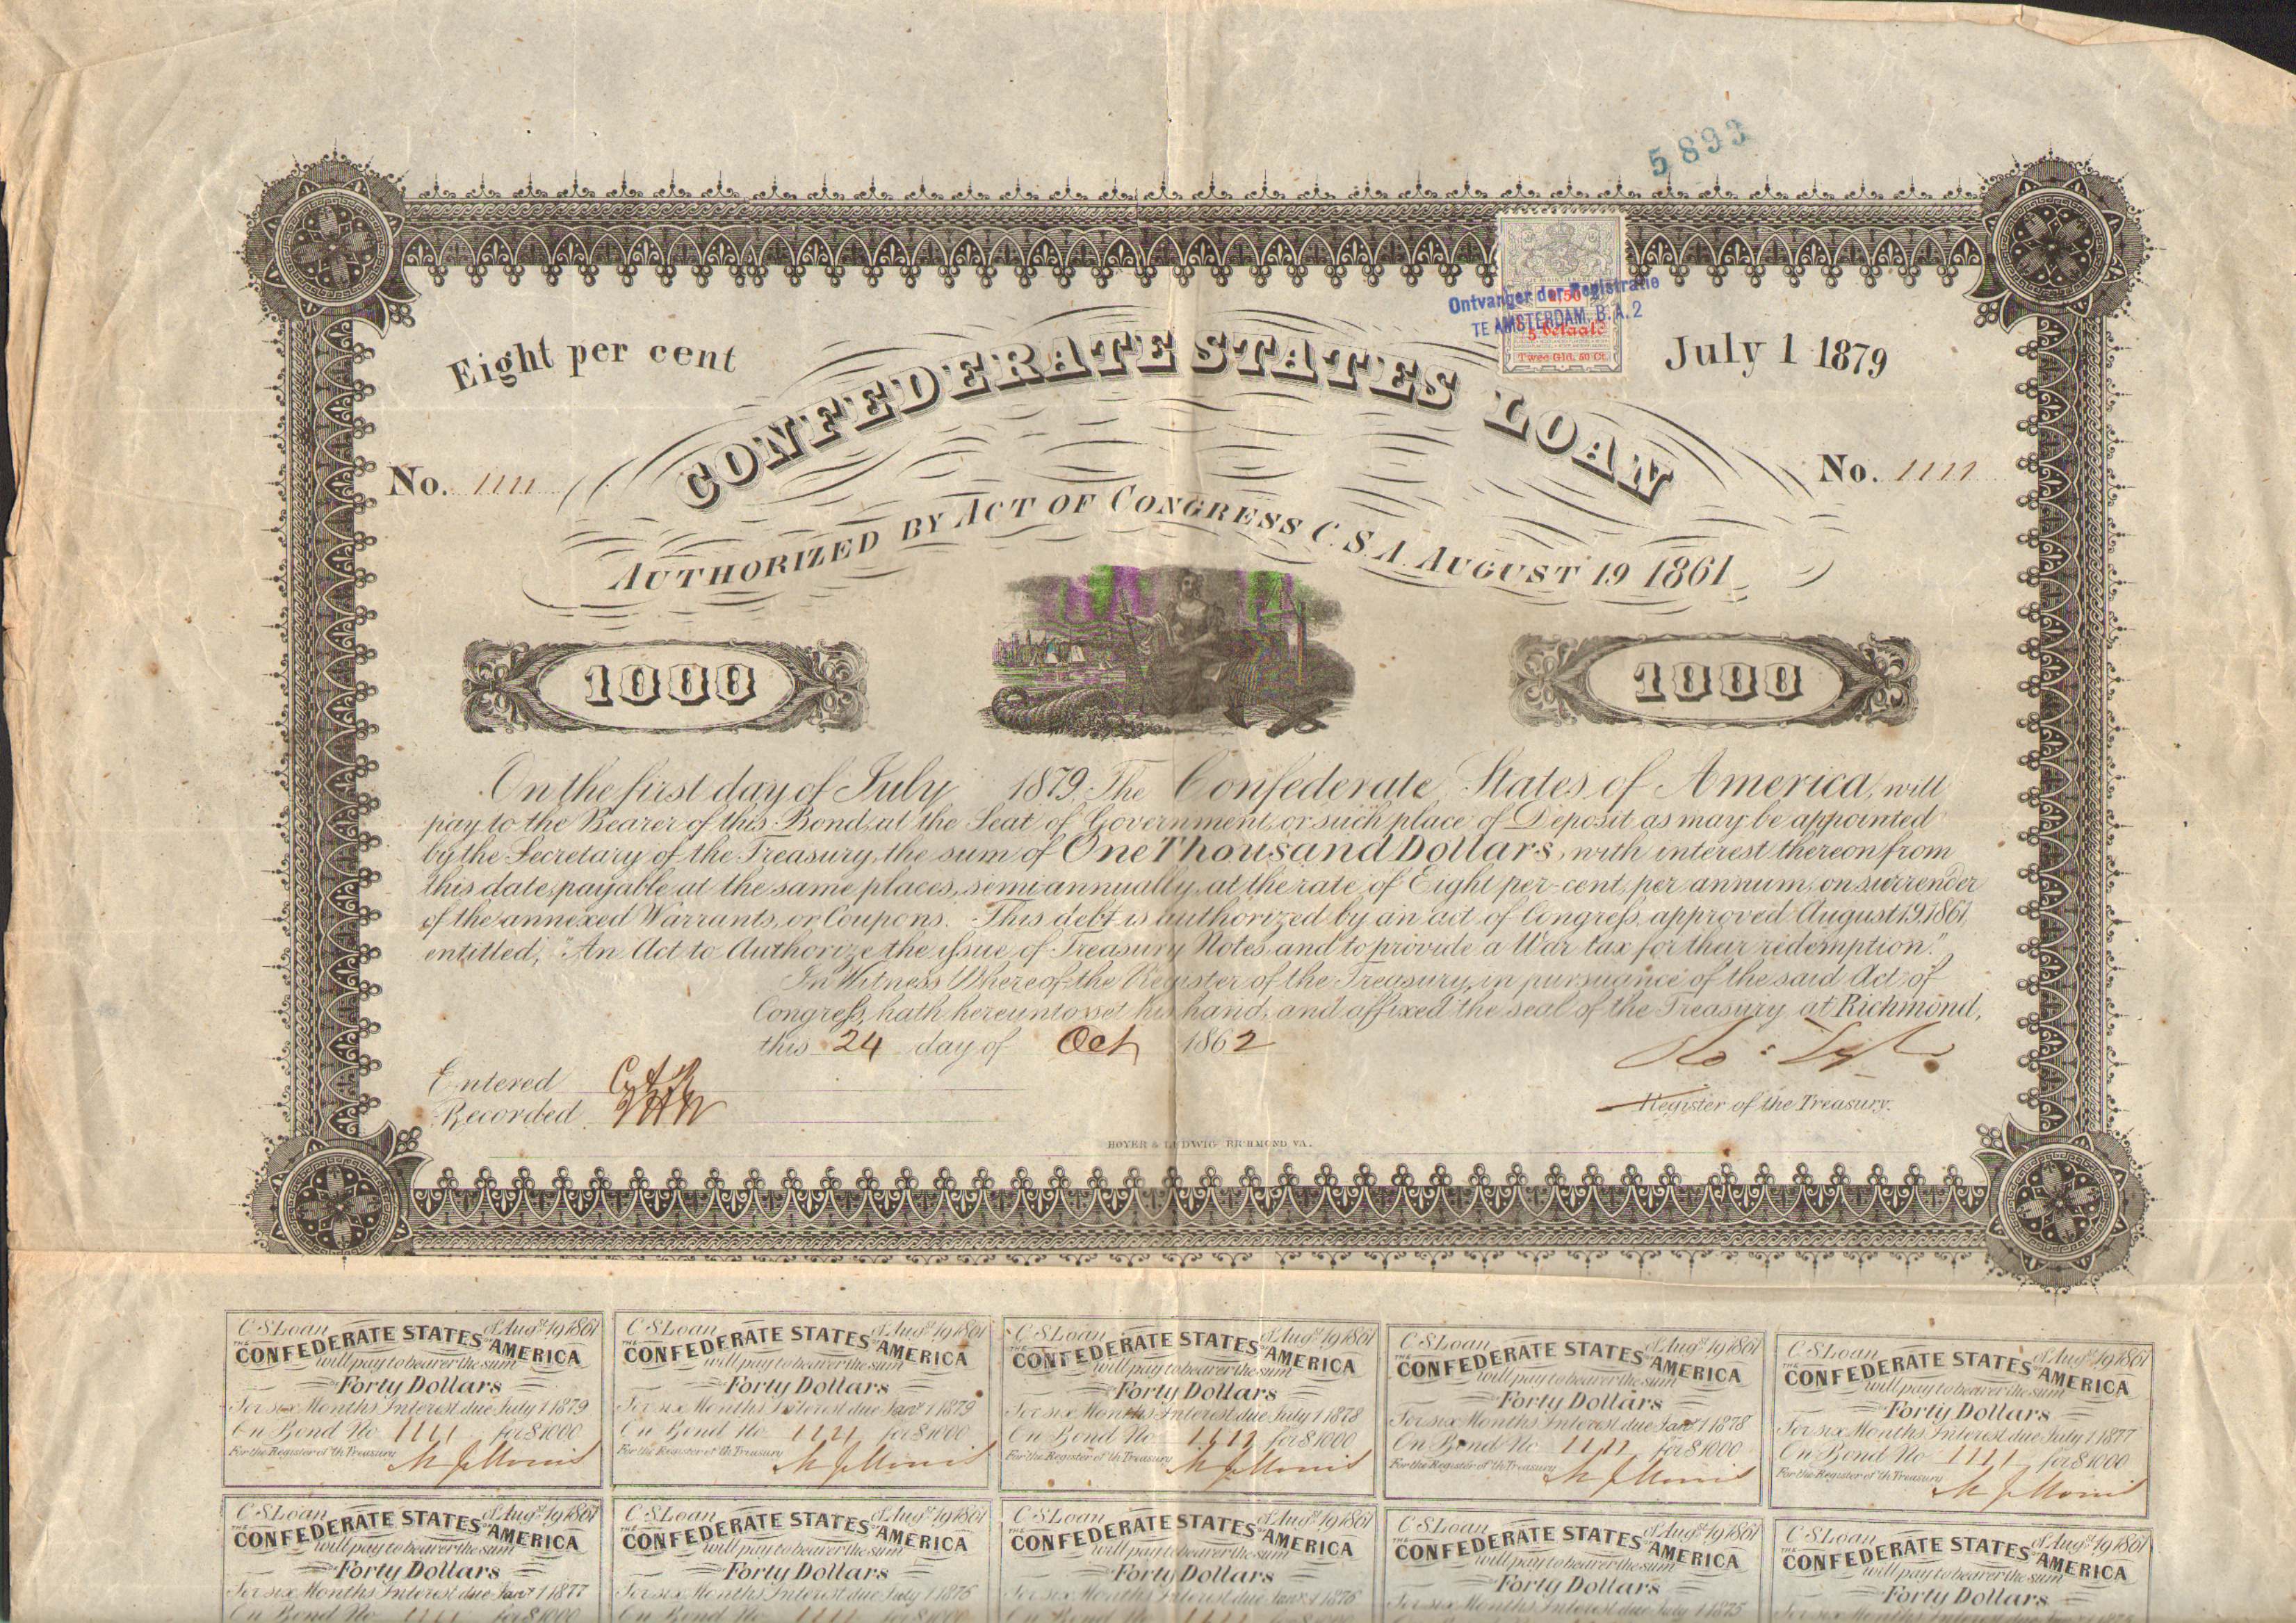 5893
Ontvanger der Registratie
TE AMSTERDAM. B.A. 2
Twee Gld. 50 Ct.
Eight per cent
July 1 1879
CONFEDERATE STATES LOAN
No. 1111
No. 1111
AUTHORIZED BY ACT OF CONGRESS C.S.A. AUGUST 19 1861
1000
1000
On the first day of July 1879, The Confederate States of America, will
pay to the Bearer of this Bond, at the Seat of Government, or such place of Deposit as may be appointed
by the Secretary of the Treasury, the sum of One Thousand Dollars, with interest thereon from
this date, payable at the same places, semi annually, at the rate of Eight per-cent, per annum, on surrender
of the annexed Warrants, or Coupons. This debt is authorized by an act of Congress, approved August 19, 1861,
entitled, "An Act to Authorize the issue of Treasury Notes, and to provide a War tax for their redemption."
In Witness Whereof the Register of the Treasury, in pursuance of the said Act of
Congress, hath hereunto set his hand, and affixed the seal of the Treasury at Richmond,
this 24 day of Oct 1862
Entered
Recorded
Register of the Treasury.
HOYER & LUDWIG RICHMOND VA.
C S Loan of Augst 19 1861
THE CONFEDERATE STATES OF AMERICA
will pay to bearer the sum
Forty Dollars
For six Months Interest due July 1 1879
On Bond No 1111 for $1000
For the Register of th Treasury
C S Loan of Augst 19 1861
THE CONFEDERATE STATES OF AMERICA
will pay to bearer the sum
Forty Dollars
For six Months Interest due Jany 1 1879
On Bond No 1111 for $1000
For the Register of th Treasury
C S Loan of Augst 19 1861
THE CONFEDERATE STATES OF AMERICA
will pay to bearer the sum
Forty Dollars
For six Months Interest due July 1 1878
On Bond No 1111 for $1000
For the Register of th Treasury
C S Loan of Augst 19 1861
THE CONFEDERATE STATES OF AMERICA
will pay to bearer the sum
Forty Dollars
For six Months Interest due Jany 1 1878
On Bond No 1111 for $1000
For the Register of th Treasury
C S Loan of Augst 19 1861
THE CONFEDERATE STATES OF AMERICA
will pay to bearer the sum
Forty Dollars
For six Months Interest due July 1 1877
On Bond No 1111 for $1000
For the Register of th Treasury
C S Loan of Augst 19 1861
THE CONFEDERATE STATES OF AMERICA
will pay to bearer the sum
Forty Dollars
For six Months Interest due Jany 1 1877
On Bond No 1111 for $1000
C S Loan of Augst 19 1861
THE CONFEDERATE STATES OF AMERICA
will pay to bearer the sum
Forty Dollars
For six Months Interest due July 1 1876
On Bond No 1111 for $1000
C S Loan of Augst 19 1861
THE CONFEDERATE STATES OF AMERICA
will pay to bearer the sum
Forty Dollars
For six Months Interest due Jany 1 1876
C S Loan of Augst 19 1861
THE CONFEDERATE STATES OF AMERICA
will pay to bearer the sum
Forty Dollars
For six Months Interest due July 1 1875
C S Loan of Augst 19 1861
THE CONFEDERATE STATES OF AMERICA
will pay to bearer the sum
Forty Dollars